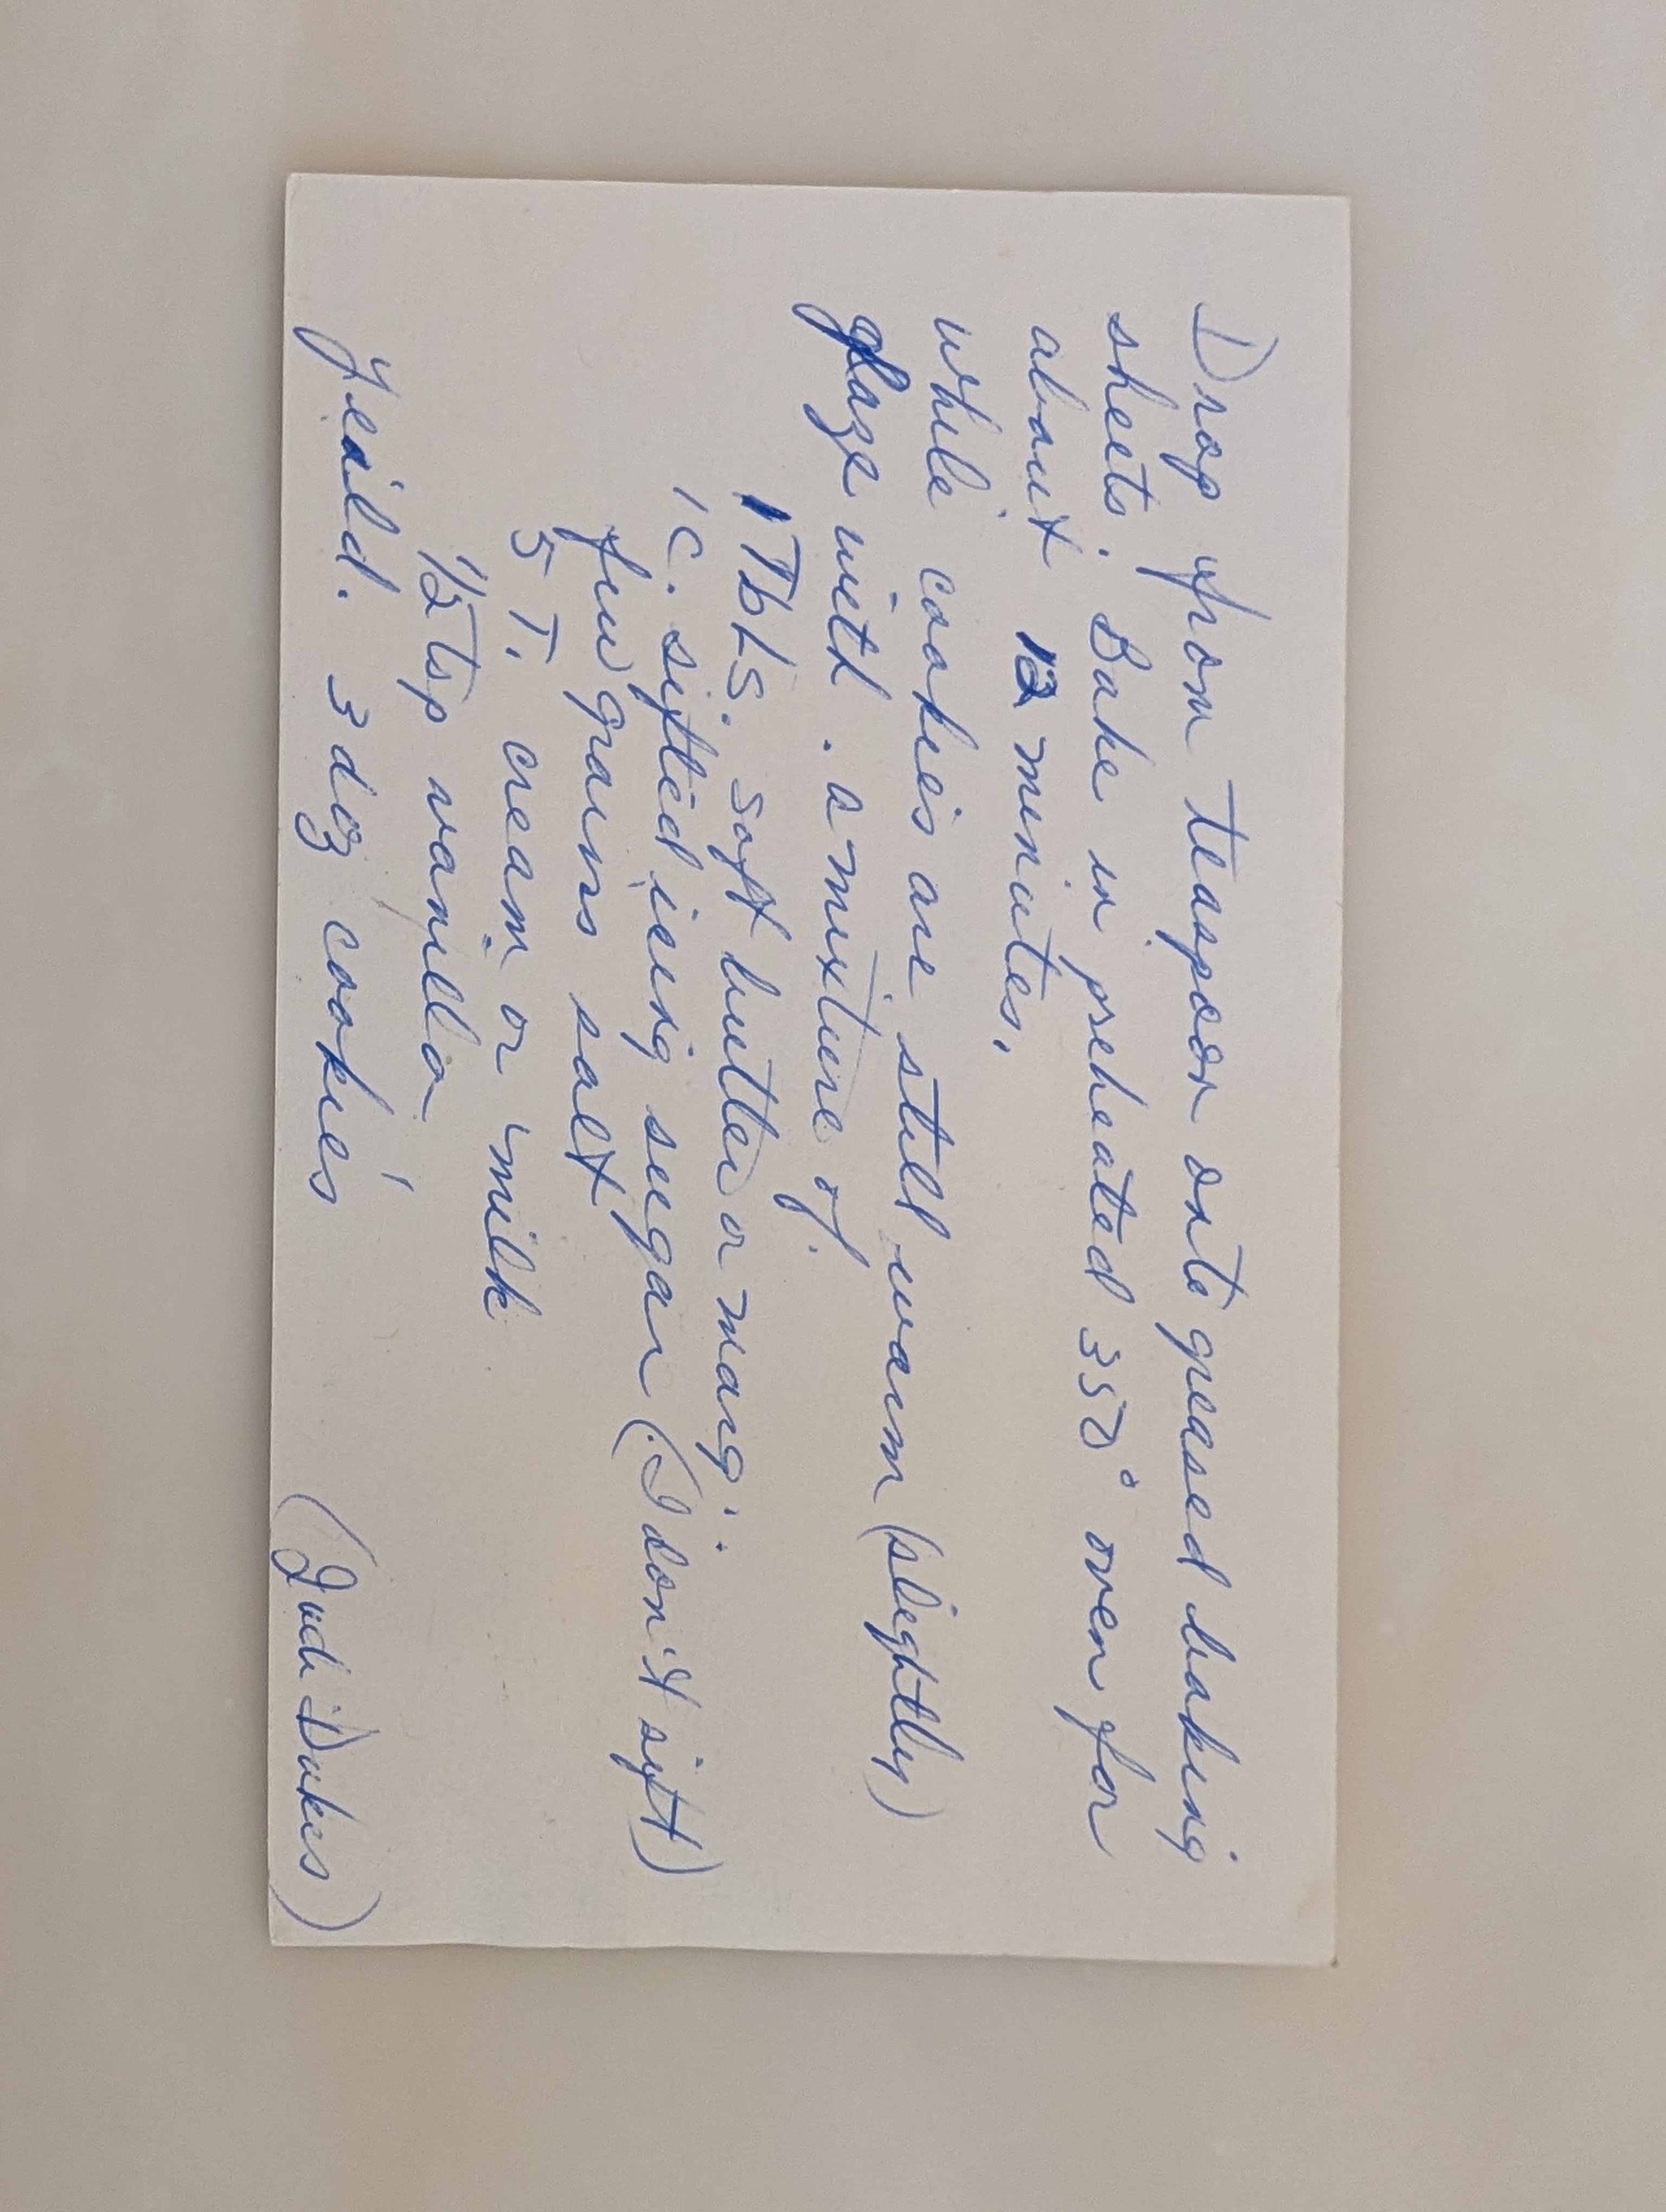 Drop from teaspoon onto greased baking
sheets. Bake in preheated 350° oven for
about 12 minutes.
while cookies are still warm (slightly)
glaze with. a mixture of.
1 TbLS. soft butter or marg.
1 C. sifted icing sugar (I don't sift)
few grains salt
5 T. cream or milk
1/2 tsp vanilla
Yeild. 3 doz cookies (Judi Dukes)